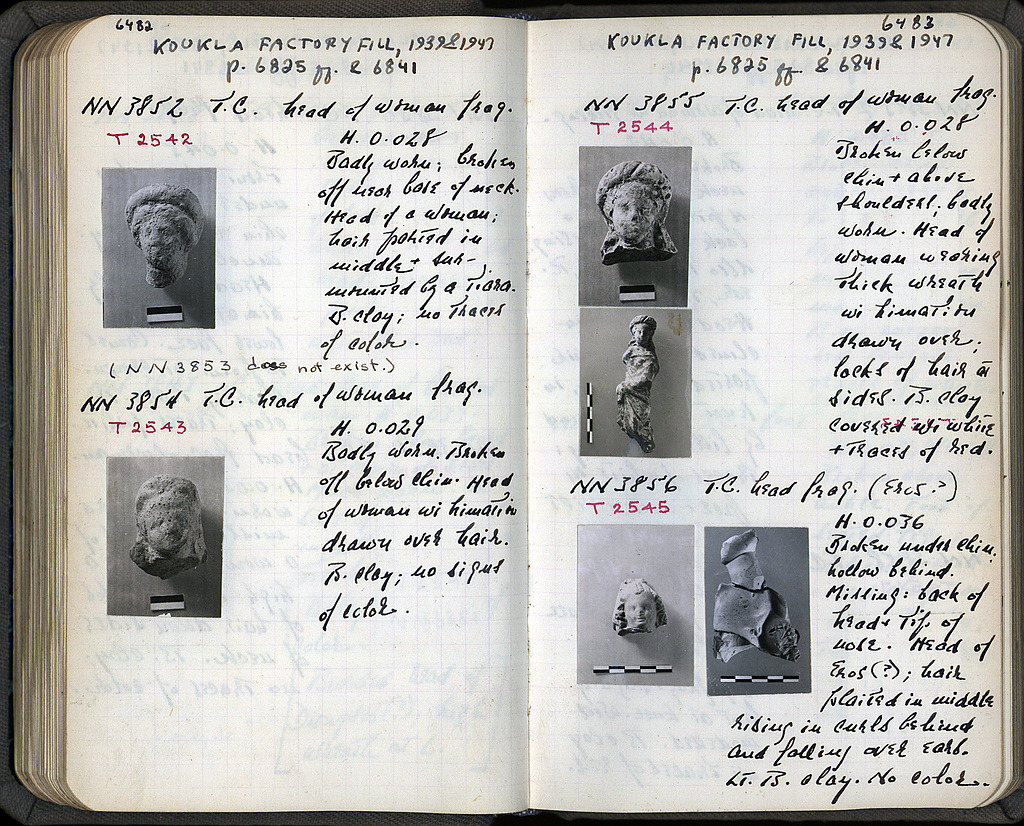 6482
KOUKLA FACTORY FILL, 1939 & 1947
p. 6825 ff. & 6841
NN 3852 T.C. head of woman frag.
T 2542
H. 0.028
Badly worn; broken
off near base of neck.
Head of a woman;
hair parted in
middle + sur-
mounted by a Tiara.
B. clay; no Traces
of color.
(NN 3853 does not exist.)
NN 3854 T.C. head of woman frag.
T 2543
H. 0.029
Badly worn. Broken
off below chin. Head
of woman wi himation
drawn over hair.
B. clay; no signs
of color.
6483
KOUKLA FACTORY FILL, 1939 & 1947
p. 6825 ff & 6841
NN 3855 T.C. head of woman frag.
T 2544
H. 0.028
Broken below
chin + above
shoulders; badly
worn. Head of
woman wearing
thick wreath
wi himation
drawn over;
locks of hair at
sides. B. clay
covered wi white
+ Traces of red.
NN 3856 T.C. head frag. (Eros?)
T 2545
H. 0.036
Broken under chin.
hollow behind.
Missing: back of
head + Tip of
nose. Head of
Eros(?); hair
plaited in middle
rising in curls behind
and falling over ears.
LT. B. clay. No color.